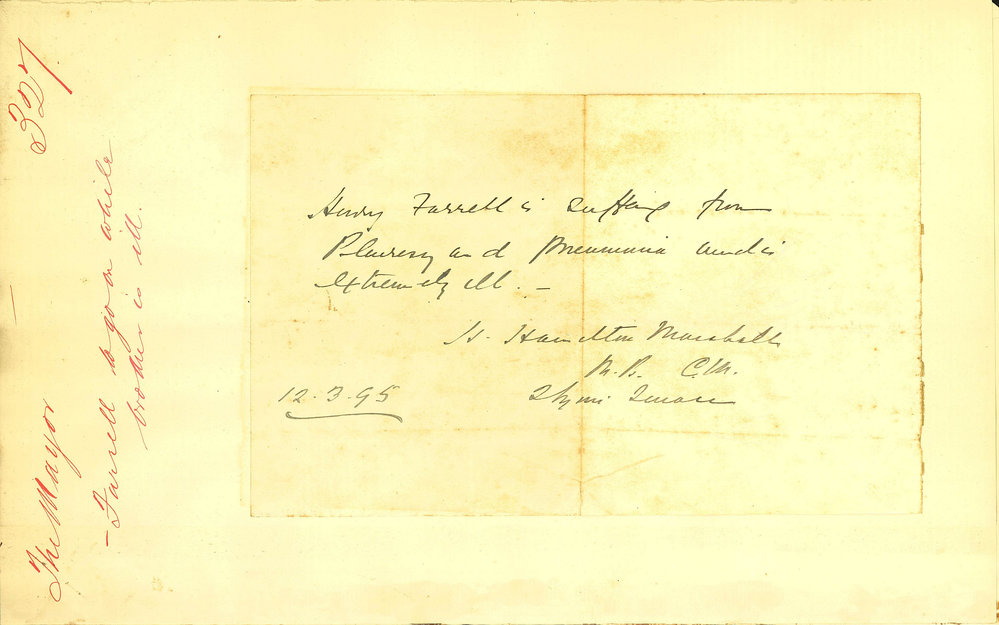 The Mayor 327
- Farrell to go on while
brother is ill.
Henry Farrell is suffering from
Pleuresy and Pneumonia and is
extremely ill. -
H. Hamilton Marshall
M.B. C.M.
12.3.95
Terrace